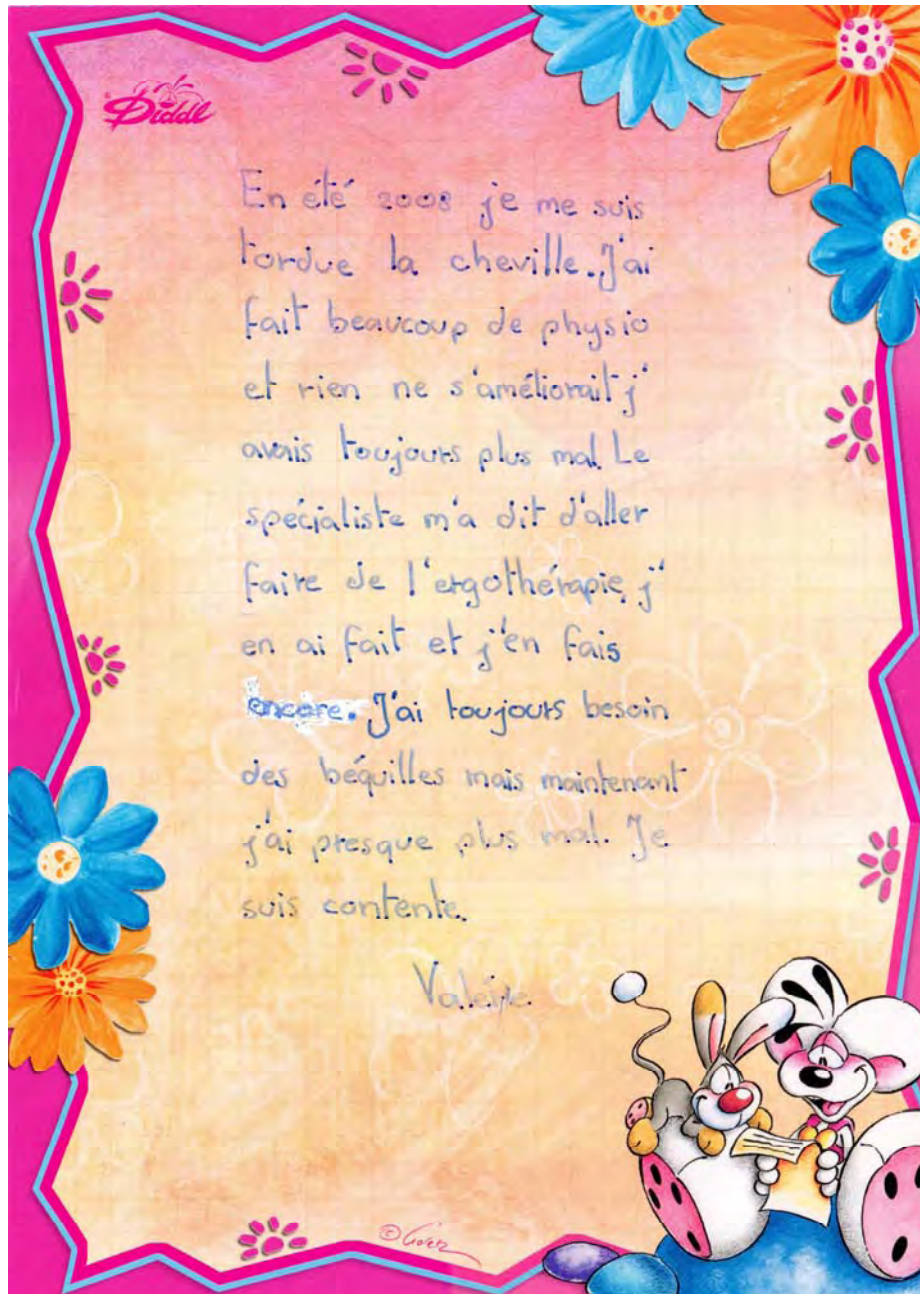 Diddl
En été 2008 je me suis
tordue la cheville. J'ai
fait beaucoup de physio
et rien ne s'améliorait j'
avais toujours plus mal. Le
spécialiste m'a dit d'aller
faire de l'ergothérapie, j'
en ai fait et j'en fais
encore. J'ai toujours besoin
des béquilles mais maintenant
j'ai presque plus mal. Je
suis contente.